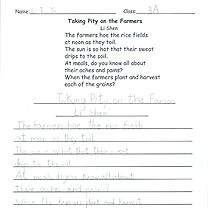 Name: Class: 3A
Taking Pity on the Farmers
Li Shen
The farmers hoe the rice fields
at noon as they toil.
The sun is so hot that their sweat
drips to the soil.
At meals, do you know all about
their aches and pains?
When the farmers plant and harvest
each of the grains?
Taking Pity on the Farmers
Li Shen
The farmers hoe the rice fields
at noon as they toil.
The sun is so hot that their sweat
drips to the soil.
At meals, do you know all about
their aches and pains?
When the farmers plant and harvest